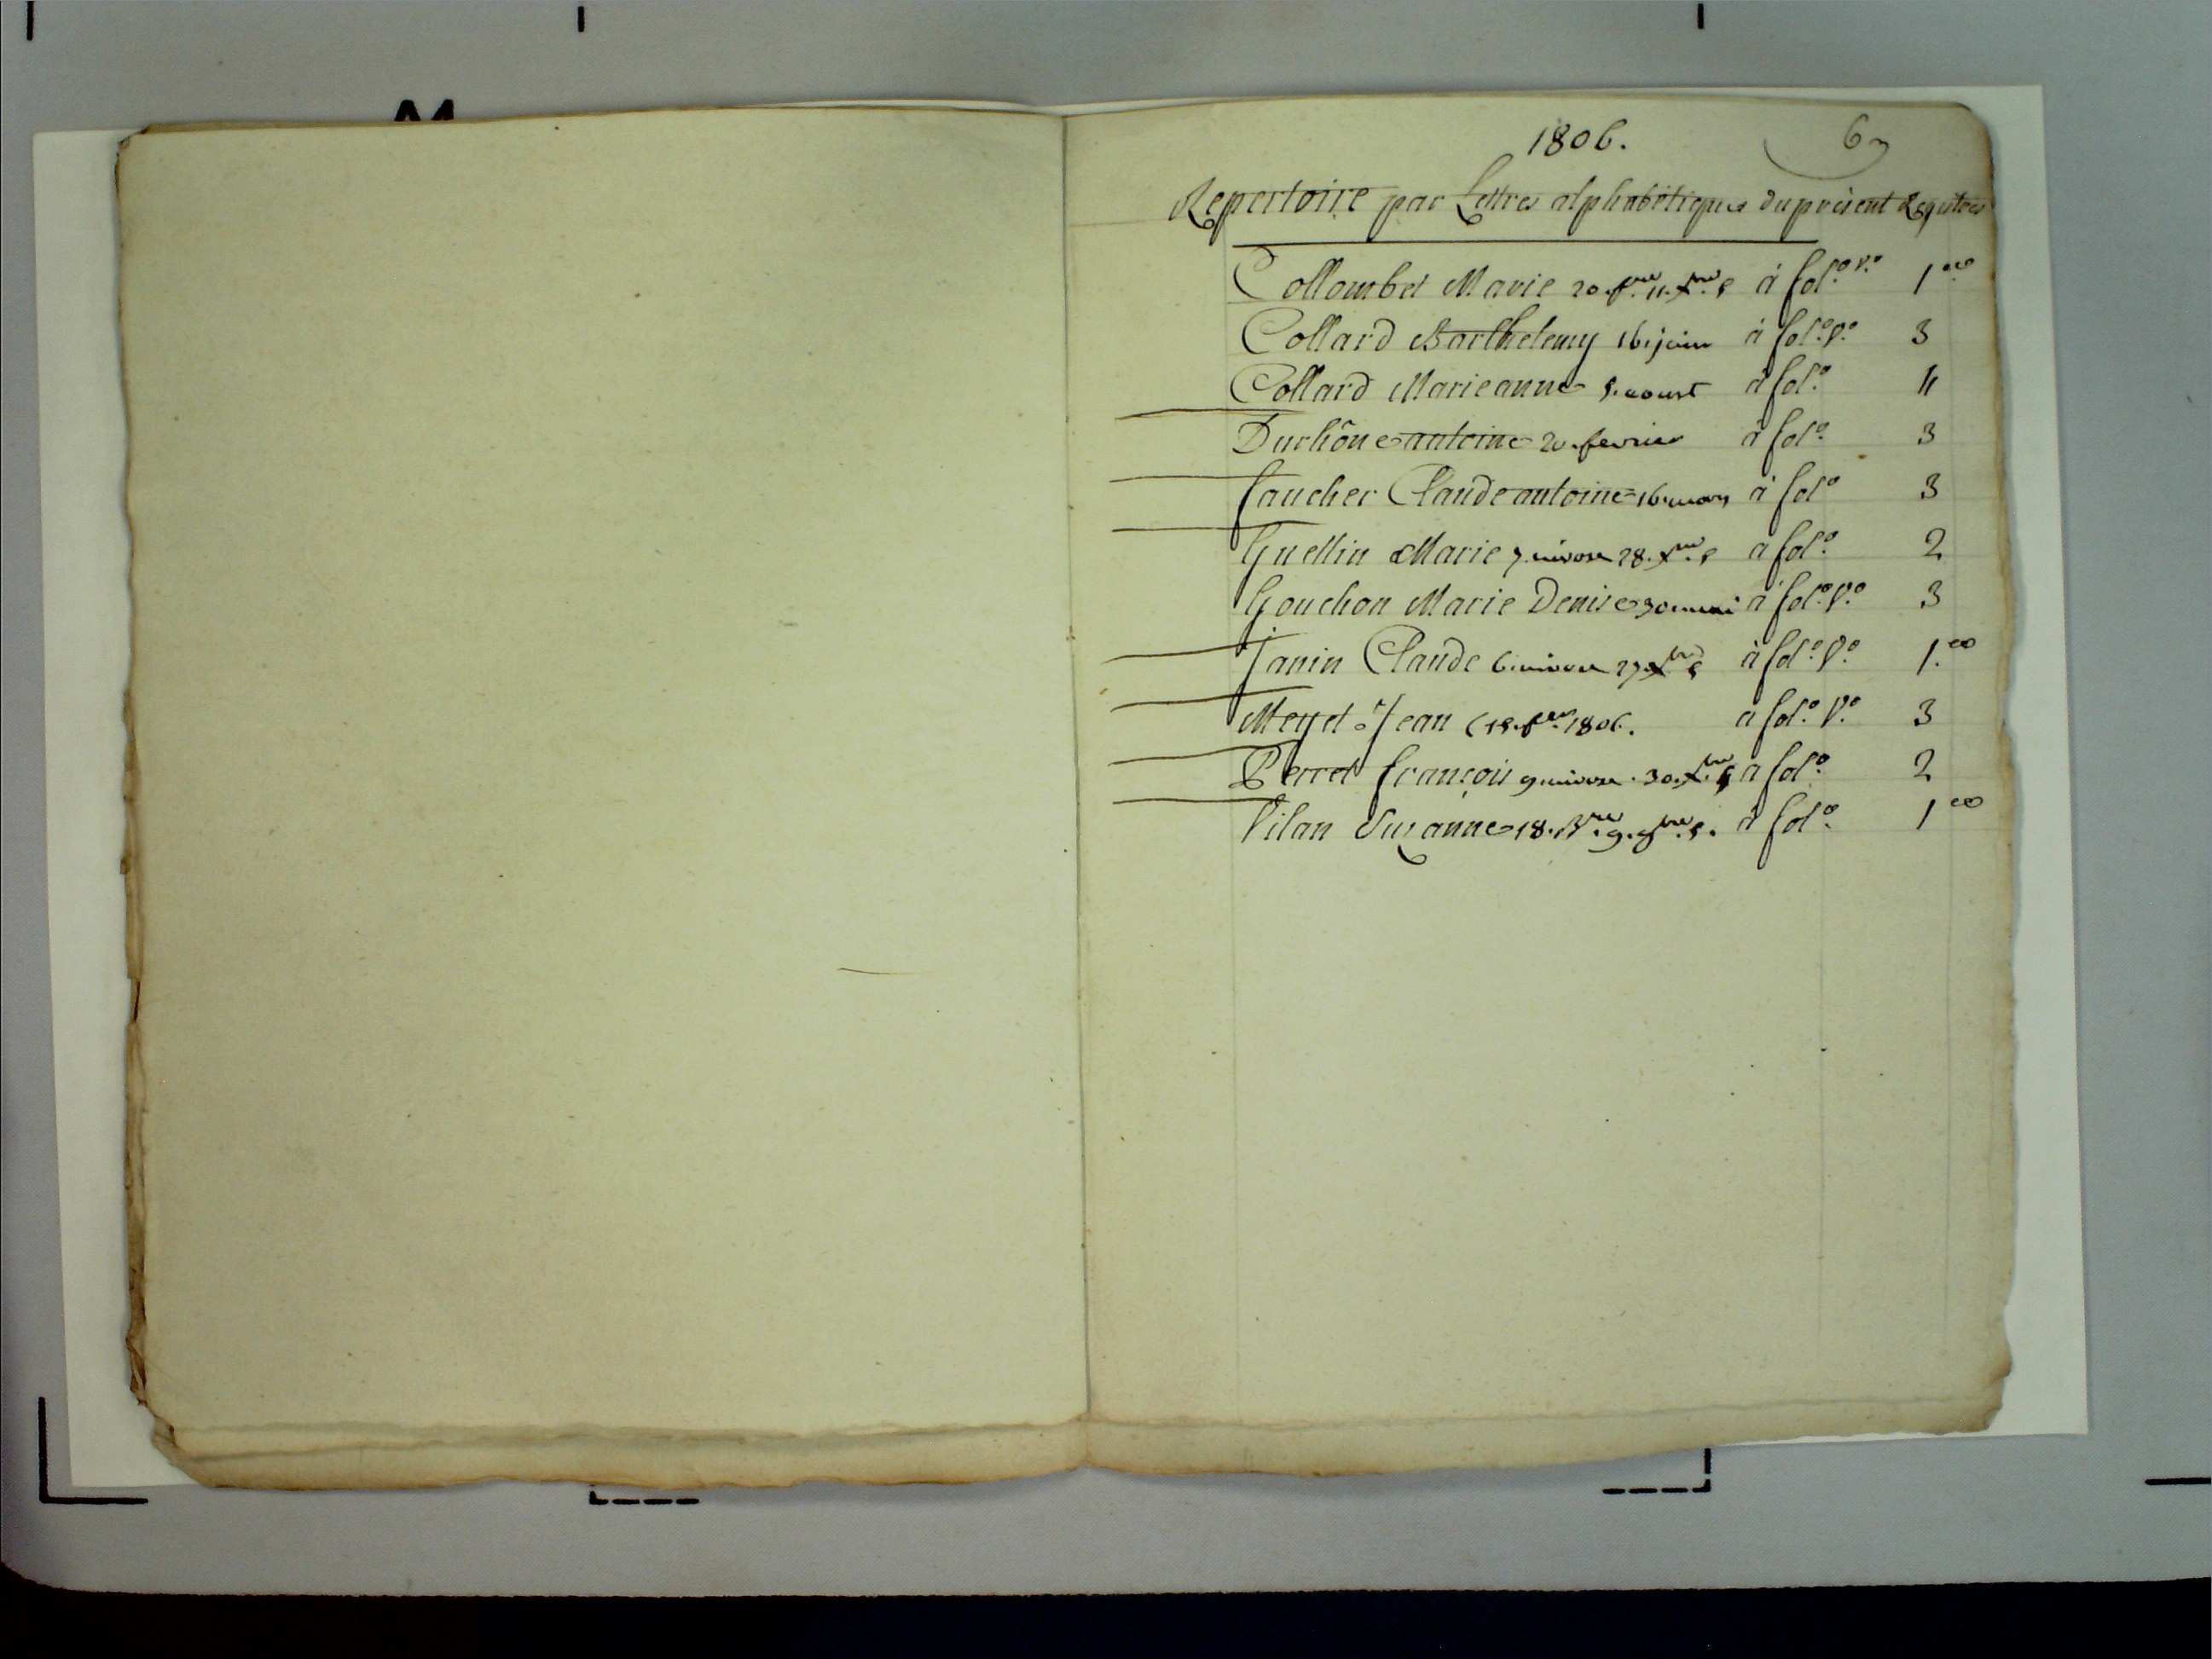 1806.
6
Repertoire par Lettres alphabétiques du présent Registres
Collombet Marie 20. fre. 11. Xbre. 5 à fol.º v.º 1.er
Collard Barthelemy 16. juin à fol.º v.º 3
Collard Marieanne 5. aoust à fol.º 4
Duchône antoine 20. fevrier à fol.º 3
faucher Claude antoine 16. mars à fol.º 3
Guellin Marie 7. nivose 28. Xbre. 5 a fol.º 2
Gouchon Marie Denise 30 mai à fol.º v.º 3
Janin Claude 6. nivose 27. Xbre 5 à fol.º v.º 1.er
Meyet Jean 1806. a fol.º v.º 3
Perret françois 9. nivose. 30. Xbre. 5 a fol.º 2
Vilan Suzanne 18. Bre. 9. 9bre. 5. à fol.º 1.er